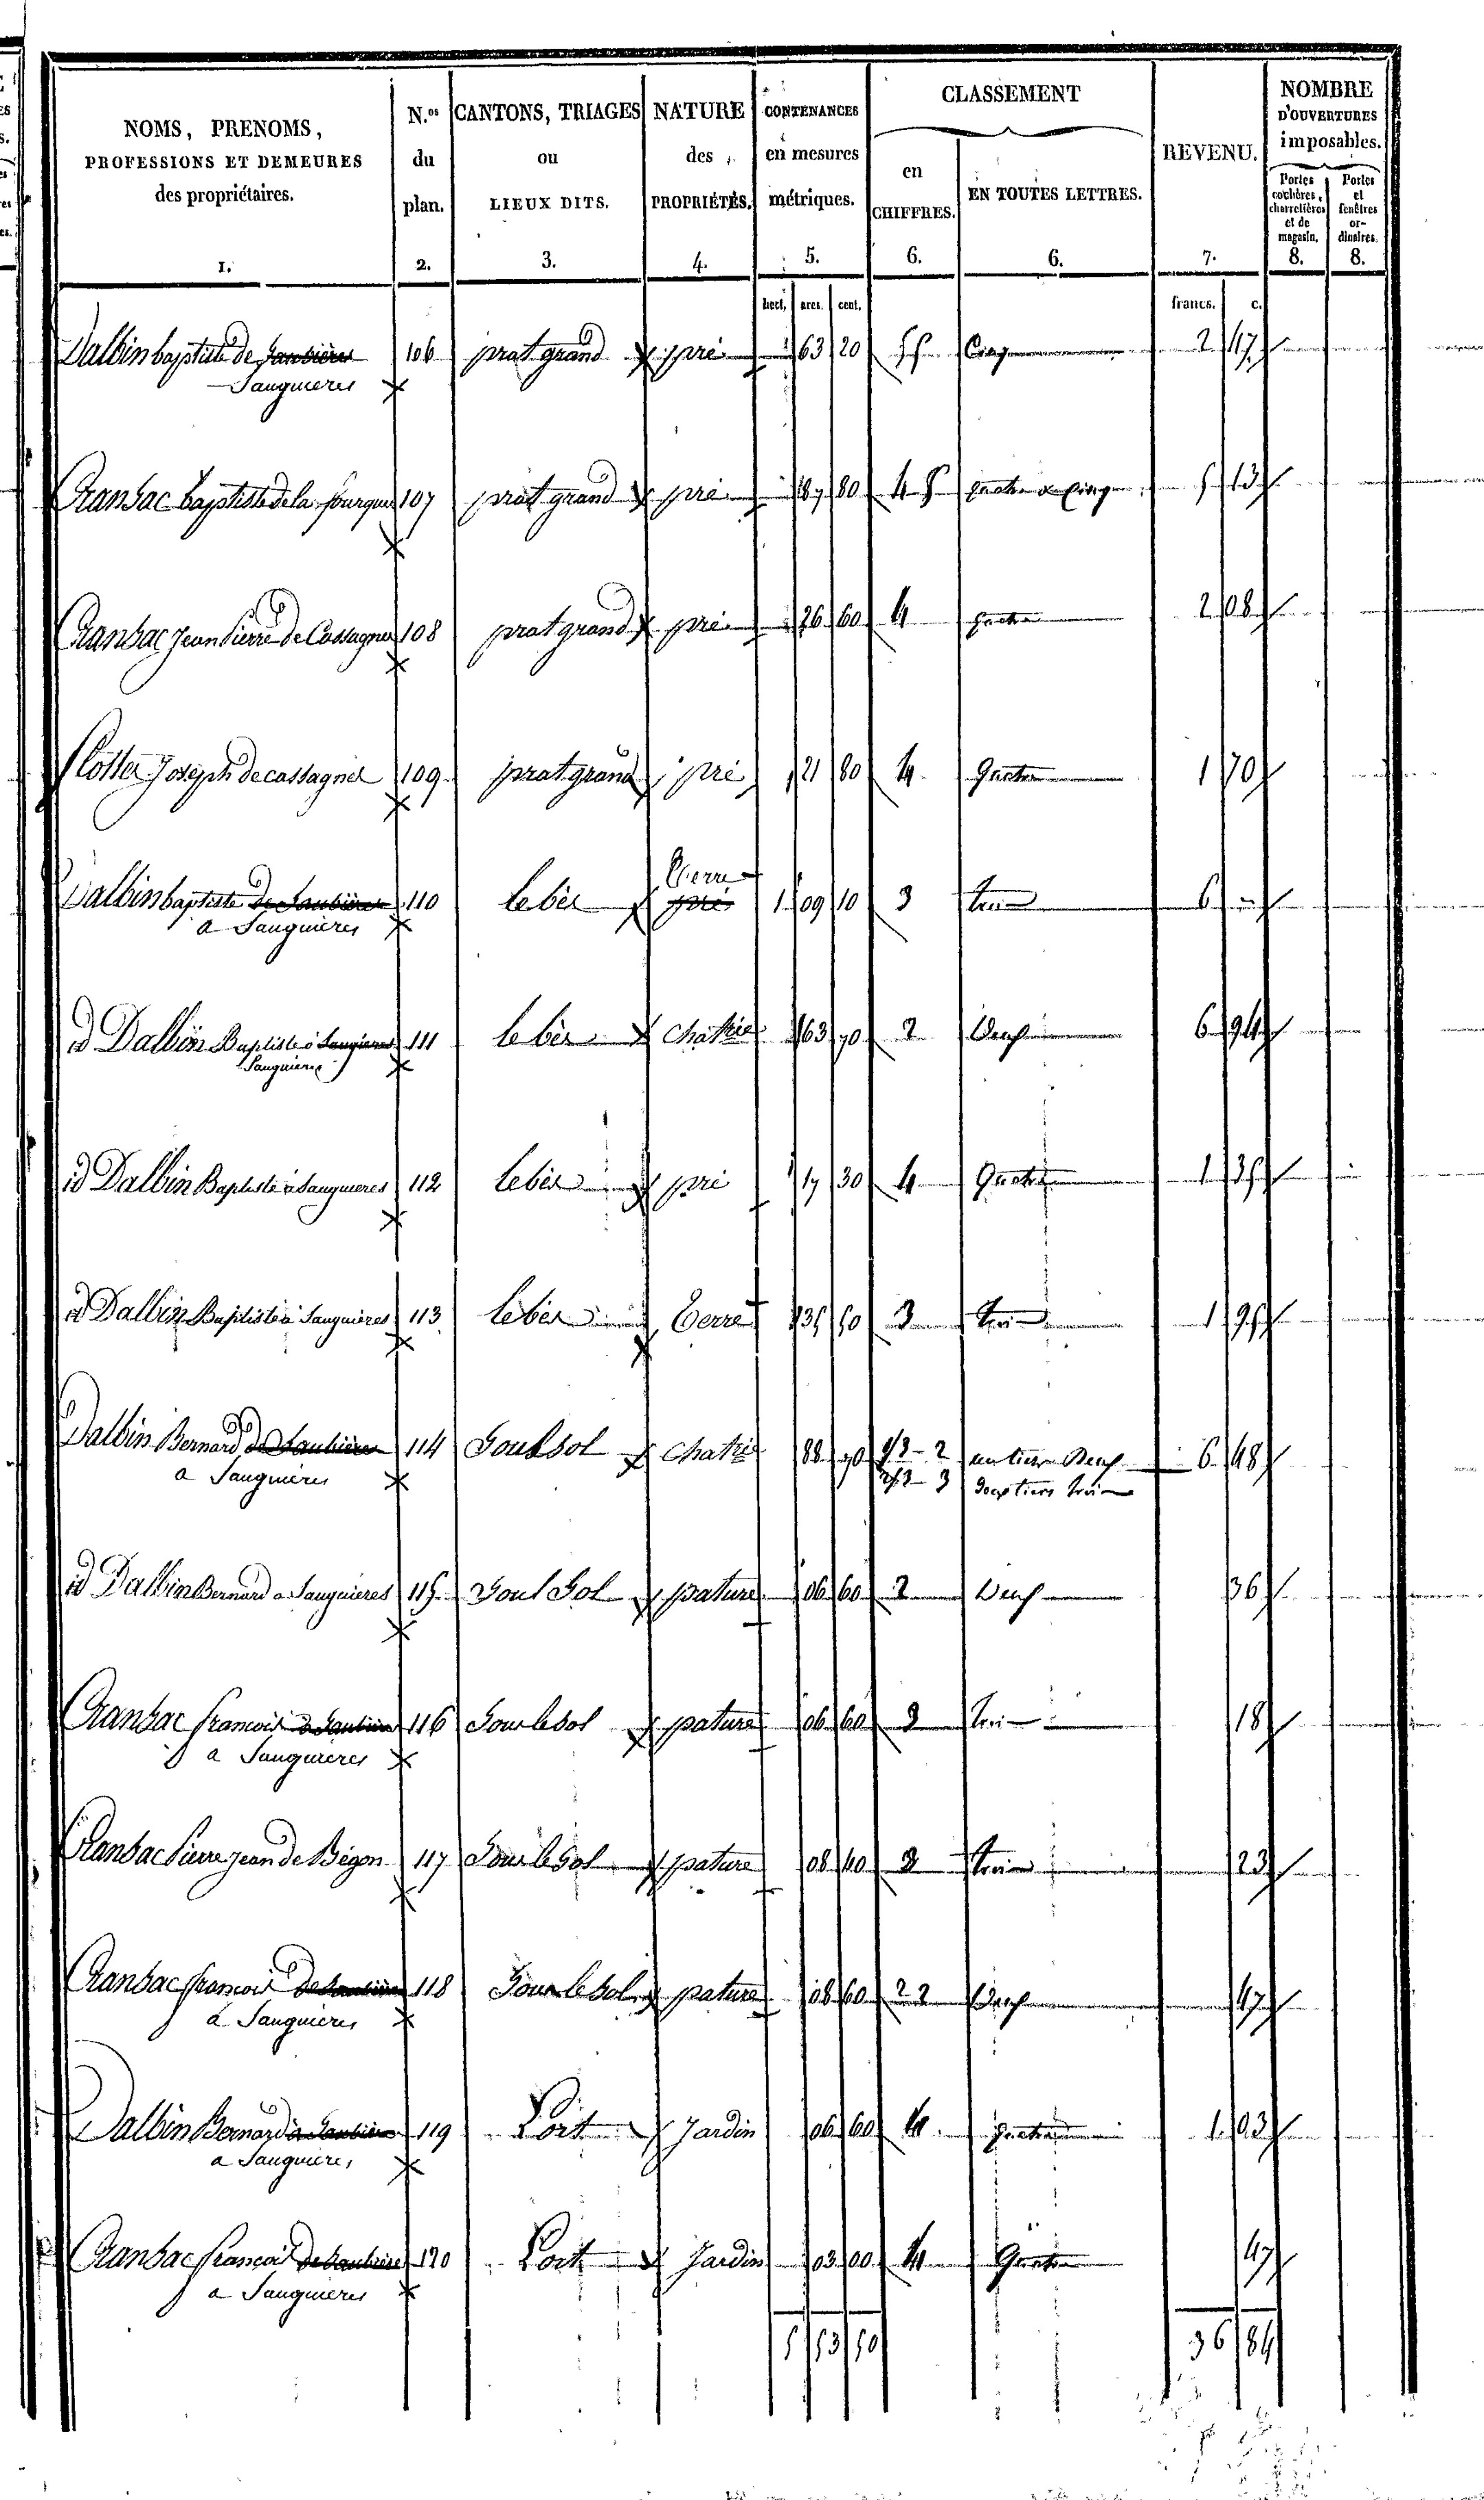 NOMS, PRENOMS,
PROFESSIONS ET DEMEURES
des propriétaires.
1.
N.os
du
plan.
2.
CANTONS, TRIAGES
ou
LIEUX DITS.
3.
NATURE
des
PROPRIÉTÉS.
4.
CONTENANCES
en mesures
métriques.
5.
CLASSEMENT
en
CHIFFRES.
6.
EN TOUTES LETTRES.
6.
REVENU.
7.
NOMBRE
D'OUVERTURES
imposables.
Portes
cochères,
charretières
et de
magasin.
8.
Portes
et
fenêtres
or-
dinaires.
8.
hect. ares. cent. francs. c.
Dalbin baptiste de 106 prat grand pré 63 20 5 Cinq 2 47
Sanguieres
Cransac baptiste de la fourque 107 prat grand pré 87 80 4 5 quatre & Cinq 5 13
Cransac Jean Pierre de Cassagnes 108 prat grand pré 26 60 4 quatre 2 08
Coste Joseph de cassagnes 109 prat grand pré 21 80 4 Quatre 1 70
Terre
Dalbin baptiste de Saubiere 110 le bés pré 1 09 10 3 trois 6
a Sanguieres
id Dalbin Baptiste à 111 le bés Chatrie 63 70 2 Deux 6 94
Sanguieres
id Dalbin Baptiste à Sanguieres 112 le bés pré 17 30 4 Quatre 1 35
id Dalbin Baptiste à Sanguières 113 le bés Terre 35 50 3 trois 1 95
Dalbin Bernard de Saubiere 114 Soulsol Chatrie 88 70 1/3 - 2 un tiers Deux 6 48
a Sanguieres 2/3 - 3 Deux tiers trois
id Dalbin Bernard a Sanguieres 115 Soul Sol pature 06 60 2 Deux 36
Cransac francois 116 Sour le sol pature 06 60 3 trois 18
a Sanguieres
Cransac Pierre jean de Bégon 117 Sour le Sol pature 08 40 3 trois 23
Cransac francois 118 Sour le Sol pature 08 60 2 2 Deux 47
a Sanguieres
Dalbin Bernard 119 Lort Jardin 06 60 4 quatre 1 03
a Sanguieres
Cransac francois 120 Lort Jardin 03 00 4 Quatre 47
a Sanguieres
5 53 50 36 84